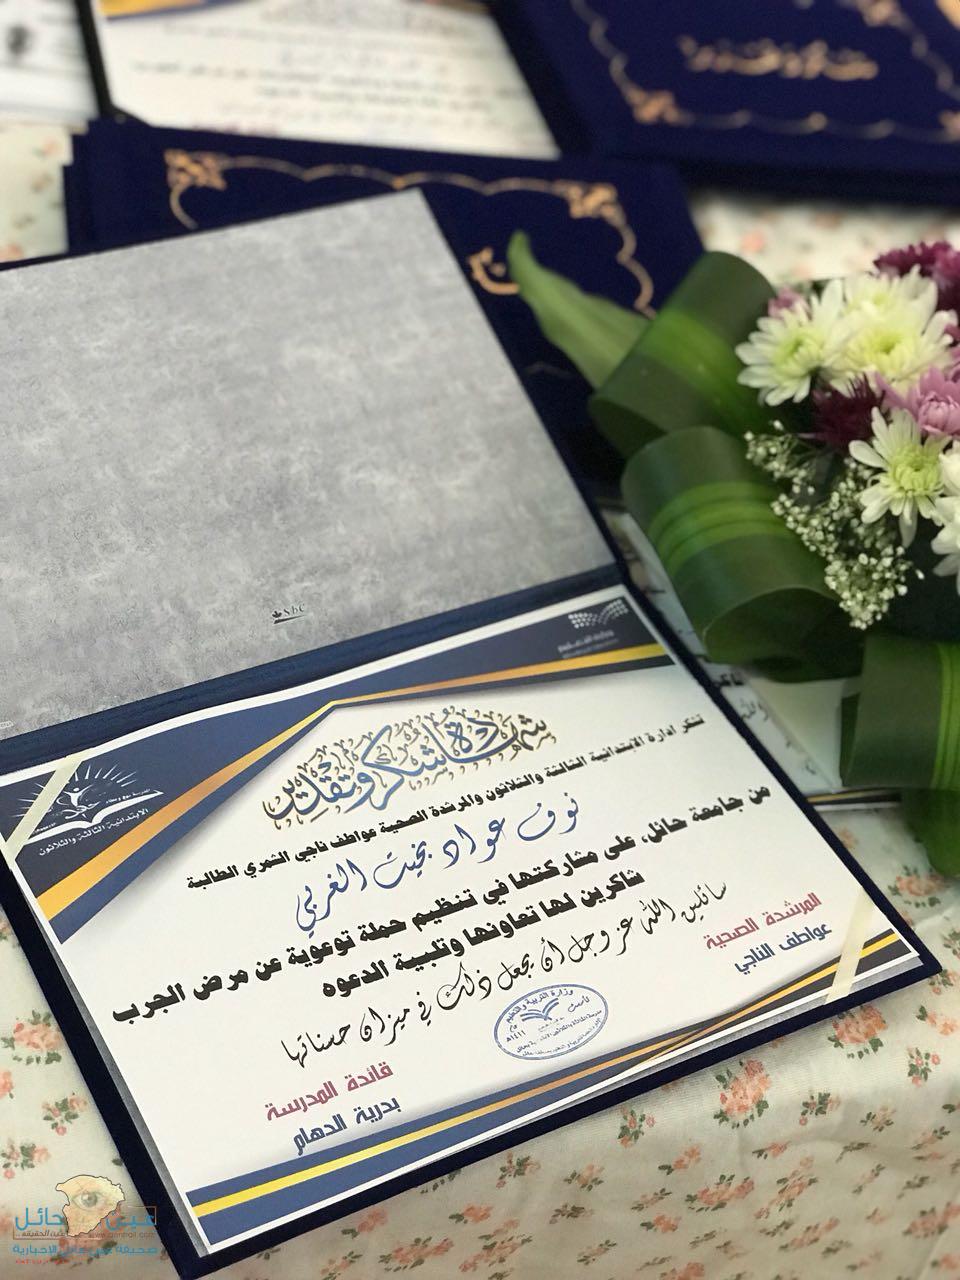 SbC
وزارة التعليم
المدرسة بيتي وعطاء
الابتدائية الثالثة والثلاثون
شهادة شكر وتقدير
تشكر ادارة الابتدائية الثالثة والثلاثون والمرشدة الصحية عواطف ناجي الشمري الطالبة
نوف عواد بخيت الغربي
من جامعة حائل، على مشاركتها في تنظيم حملة توعوية عن مرض الجرب
شاكرين لها تعاونها وتلبية الدعوه
سائلين الله عز وجل أن يجعل ذلك في ميزان حسناتها
المرشدة الصحية
عواطف الناجي
وزارة التربية والتعليم
قائدة المدرسة
بدرية الدهام
عين حائل
صحيفة عين حائل الإخبارية